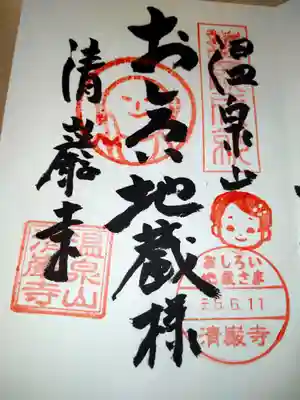 温泉山
おしろい地蔵様
清巌寺
おしろい
地蔵さま
28.6.11
清巌寺
温泉山
清巌寺